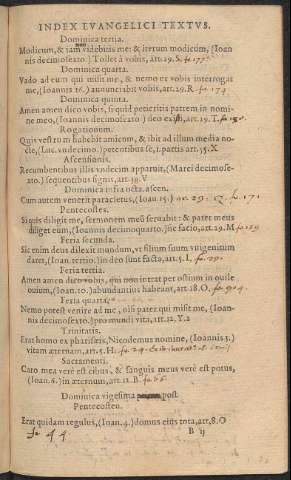 INDEX EVANGELICI TEXTVS.
Dominica tertia.
Modicum, & iam videbitis me: & iterum modicum, (Ioan
nis decimosexto) Tollet à vobis, art.29.S. fo.
Dominica quarta.
Vado ad eum qui misit me, & nemo ex vobis interrogat
me, (Ioannis 16.) annuntiabit vobis, art.29.R. fo. 174
Dominica quinta.
Amen amen dico vobis, si quid petieritis patrem in nomi-
ne meo, (Ioannis decimosexto) deo existi, art.29.T. fo.
Rogationum.
Quis vestrum habebit amicum, & ibit ad illum media no-
cte, (Luc. vndecimo.) petentibus se, 1. partis art.15.X
Ascensionis.
Recumbentibus illis vndecim apparuit, (Marci decimose-
xto.) sequentibus signis, art.39.V
Dominica infra octa. ascen.
Cum autem venerit paracletus, (Ioan.15.) fo. 171
Pentecostes.
Si quis diligit me, sermonem meũ seruabit: & pater meus
diliget eum, (Ioannis decimoquarto.) sic facio, art.29.M fo 169
Feria secunda.
Sic enim deus dilexit mundum, vt filium suum vnigenitum
daret, (Ioan. tertio.) in deo sunt facta, art.5.I. fo. 29.
Feria tertia.
Amen amen dico vobis, qui non intrat per ostium in ouile
ouium, (Ioan.10.) abundantius habeant, art.18.O. fo.
Feria quarta.
Nemo potest venire ad me, nisi pater qui misit me, (Ioan-
nis decimosexto.) pro mundi vita, art.12.Y.2
Trinitatis.
Erat homo ex pharisæis, Nicodemus nomine, (Ioannis 3.)
vitam æternam, art.5.H. fo. 29.
Sacramenti.
Caro mea verè est cibus, & sanguis meus verè est potus,
(Ioan.6.) in æternum, art.12.B. fo.
Dominica vigesima post
Pentecosten.
Erat quidam regulus, (Ioan.4.) domus eius tota, art.8.O
fo 44
B ij